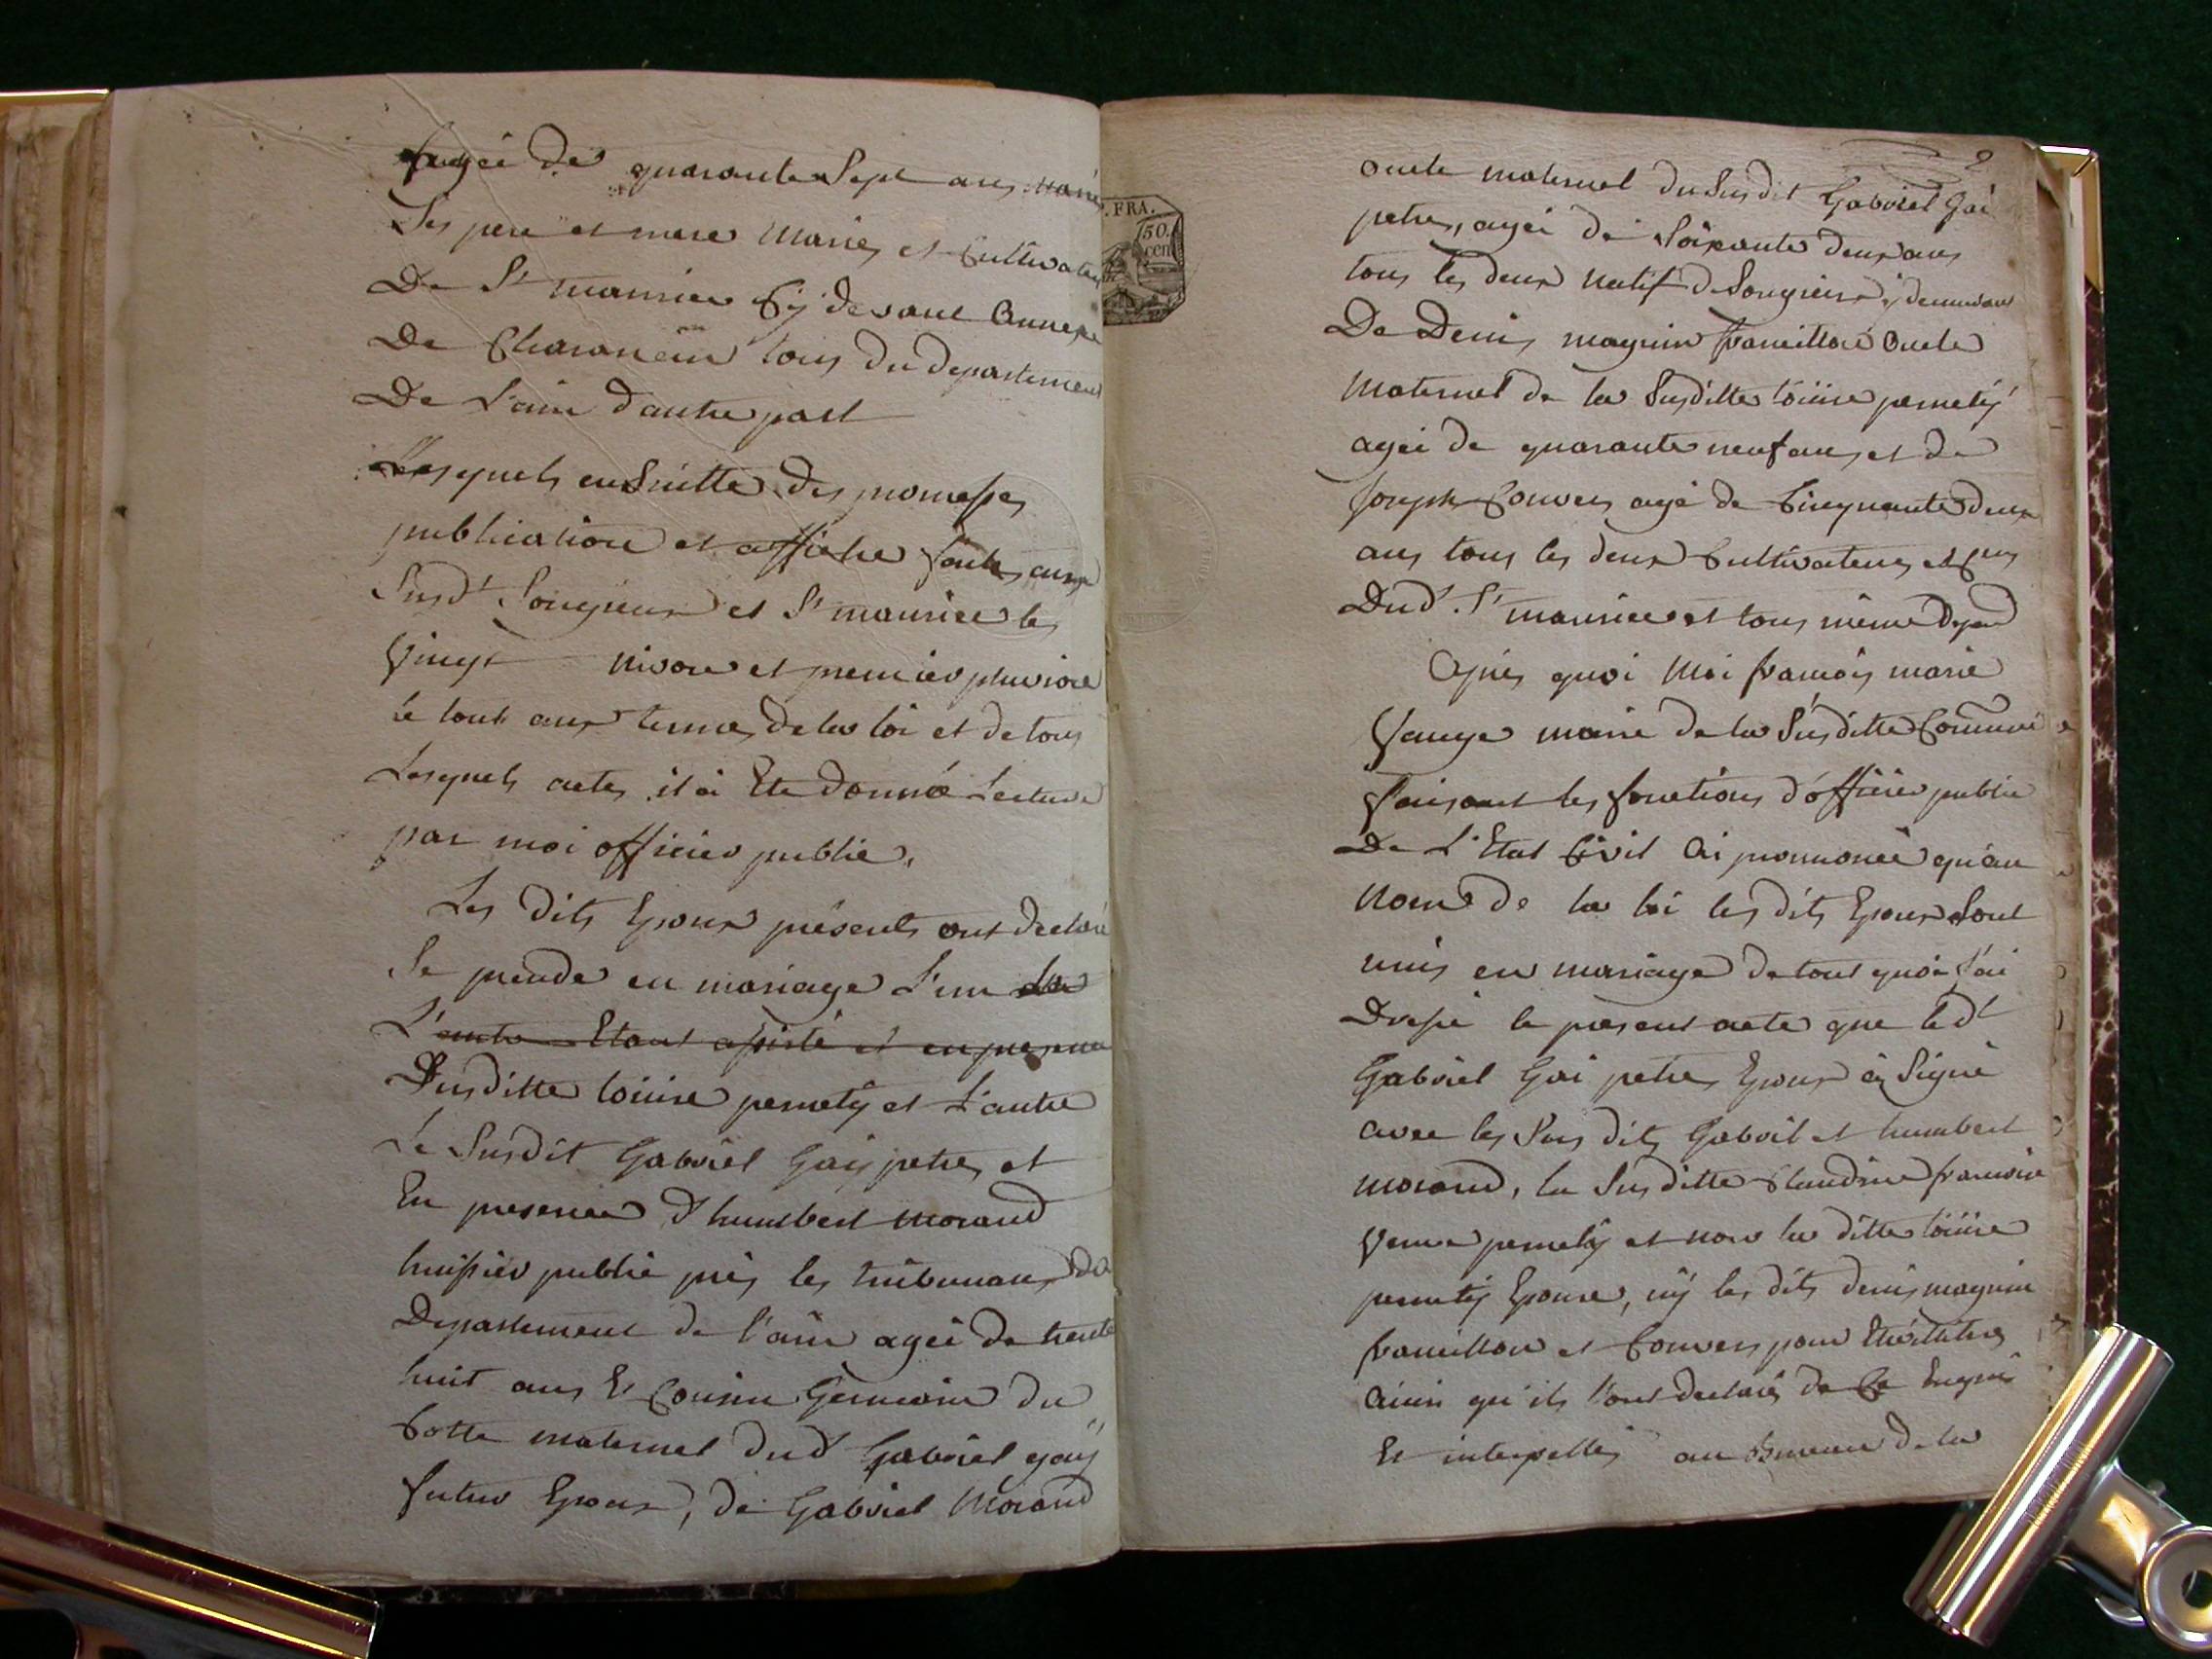 agée de quarante Sept ans marié
Ses pere et mere Mariés et Cultivateurs
De St maurice Cy devant Annexe
De Charancin tous du departement
De L'ain d'autre part
Lesquels en Suitte des promesses
publication et affiche faites aux
Susdt Songieux et St maurice les
Vingt nivose et premier pluviose
le tout aux termes de la loi et de tous
Lesquels actes il a Ete donné Lecture
par moi officier public,
Les dits Epoux présents ont declaré
Se prendre en mariage L'un la
L'autre Etant assisté et en presence
Susditte loüise pernety et L'autre
Le Susdit Gabriel Gay petres et
En presence d'humbert Morand
huissier public près les tribunaux du
Departement de l'ain agé de trente
huit ans Et Cousin Germain du
Cotte maternel dud Gabriel gaÿ
futur Epoux, de Gabriel Morand
P. FRA.
50.
cen
2
oncle maternel du Susdit Gabriel Gai
petres, agé de Soixante deux ans
tous les deux natif de Songieux y demeurant
De Denis magnin francillon oncle
Maternel de la Susditte loüise pernety
agé de quarante neuf ans et de
Joseph Convers agé de Cinquante deux
ans tous les deux Cultivateurs et
Dud. St maurice et tous même Depard
Après quoi Moi francois marie
Vauge maire de la Susditte Commune
faisant les fonctions d'officier public
De L'Etat Civil Ai prononcé qu'au
Nom de la loi les dits Epoux Sont
unis en mariage de tout quoi J'ai
Dressé le present acte que led
Gabriel Gai petres Epoux à Signé
avec les Sus dits Gabriel et humbert
morand, la Susditte Claudine francoise
Veuve pernety et non la ditte loüise
pernety Epouse, nÿ les dits denis magnin
francillon et Convers pour Etre illitrés
Ainsi qu'ils l'ont declarés de Ce Enquis
Et interpellés au Bureau de la